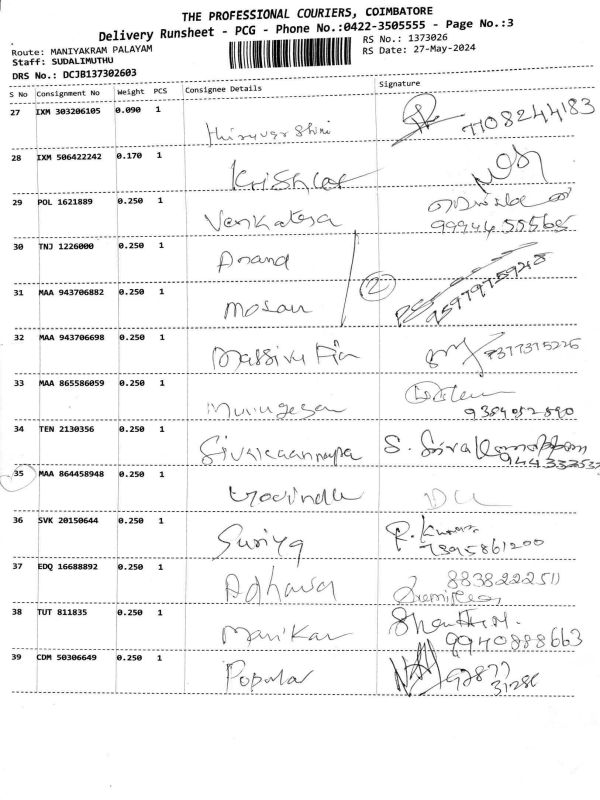 THE PROFESSIONAL COURIERS, COIMBATORE
Delivery Runsheet - PCG - Phone No.:0422-3505555 - Page No.:3
Route: MANIYAKRAM PALAYAM
Staff: SUDALIMUTHU
DRS No.: DCJB137302603
RS No.: 1373026
RS Date: 27-May-2024
S No Consignment No Weight PCS Consignee Details Signature
27 IXM 303206105 0.090 1 7708244183
28 IXM 506422242 0.170 1
29 POL 1621889 0.250 1 Venkatesa
99944 55568
30 TNJ 1226000 0.250 1 Anand
2
31 MAA 943706882 0.250 1 Mosau 9597975948
32 MAA 943706698 0.250 1
33 MAA 865586059 0.250 1 Murugesan
34 TEN 2130356 0.250 1
35 MAA 864458948 0.250 1 Govindu
36 SVK 20150644 0.250 1 Suriya R. Kumar
7395861200
37 EDQ 16688892 0.250 1 8838222511
38 TUT 811835 0.250 1 Manikan Shanthi M.
9940888663
39 CDM 50306649 0.250 1 Popular 92877
31286